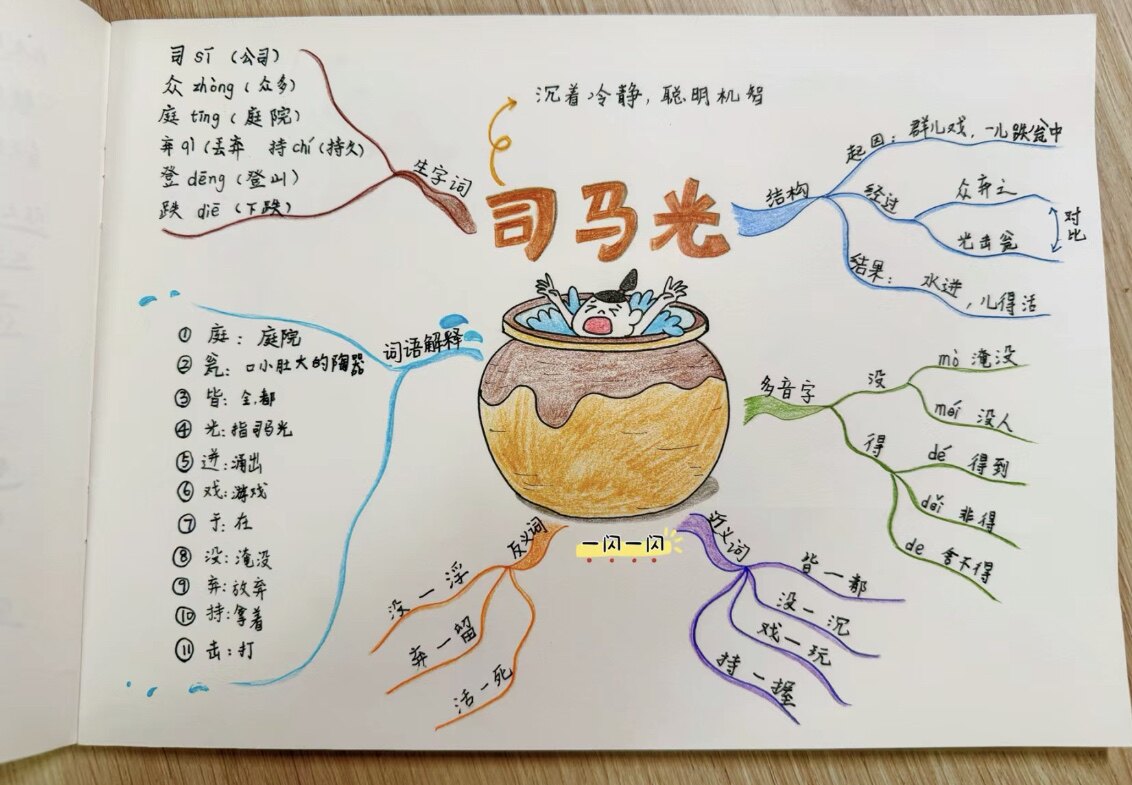 司 sī（公司）
众 zhòng（众多）
庭 tīng（庭院）
弃 qì（丢弃 持 chí（持久）
登 dēng（登山）
跌 diē（下跌）
生字词
沉着冷静，聪明机智
司马光
结构
起因：群儿戏，一儿跌瓮中
经过
众弃之
光击瓮
对比
结果：水迸，儿得活
词语解释
① 庭：庭院
② 瓮：口小肚大的陶器
③ 皆：全，都
④ 光：指司马光
⑤ 迸：涌出
⑥ 戏：游戏
⑦ 于：在
⑧ 没：淹没
⑨ 弃：放弃
⑩ 持：拿着
⑪ 击：打
多音字
没
mò 淹没
méi 没人
得
dé 得到
děi 非得
de 舍不得
反义词
没一浮
弃一留
活一死
一闪一闪
近义词
皆一都
没一沉
戏一玩
持一握